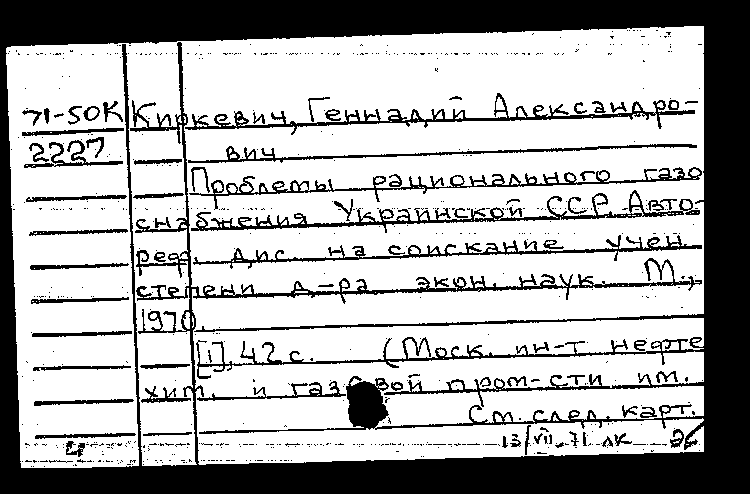 71-50К Киркевич, Геннадий Александро-
2227 вич.
Проблемы рационального газо
снабжения Украинской ССР. Авто-
реф. дис. на соискание учен.
степени д-ра экон. наук. М.,
1970.
[1], 42 с. (Моск. ин-т нефте
хим. и газовой пром-сти им.
См. след. карт.
13/VII-71 ЛК